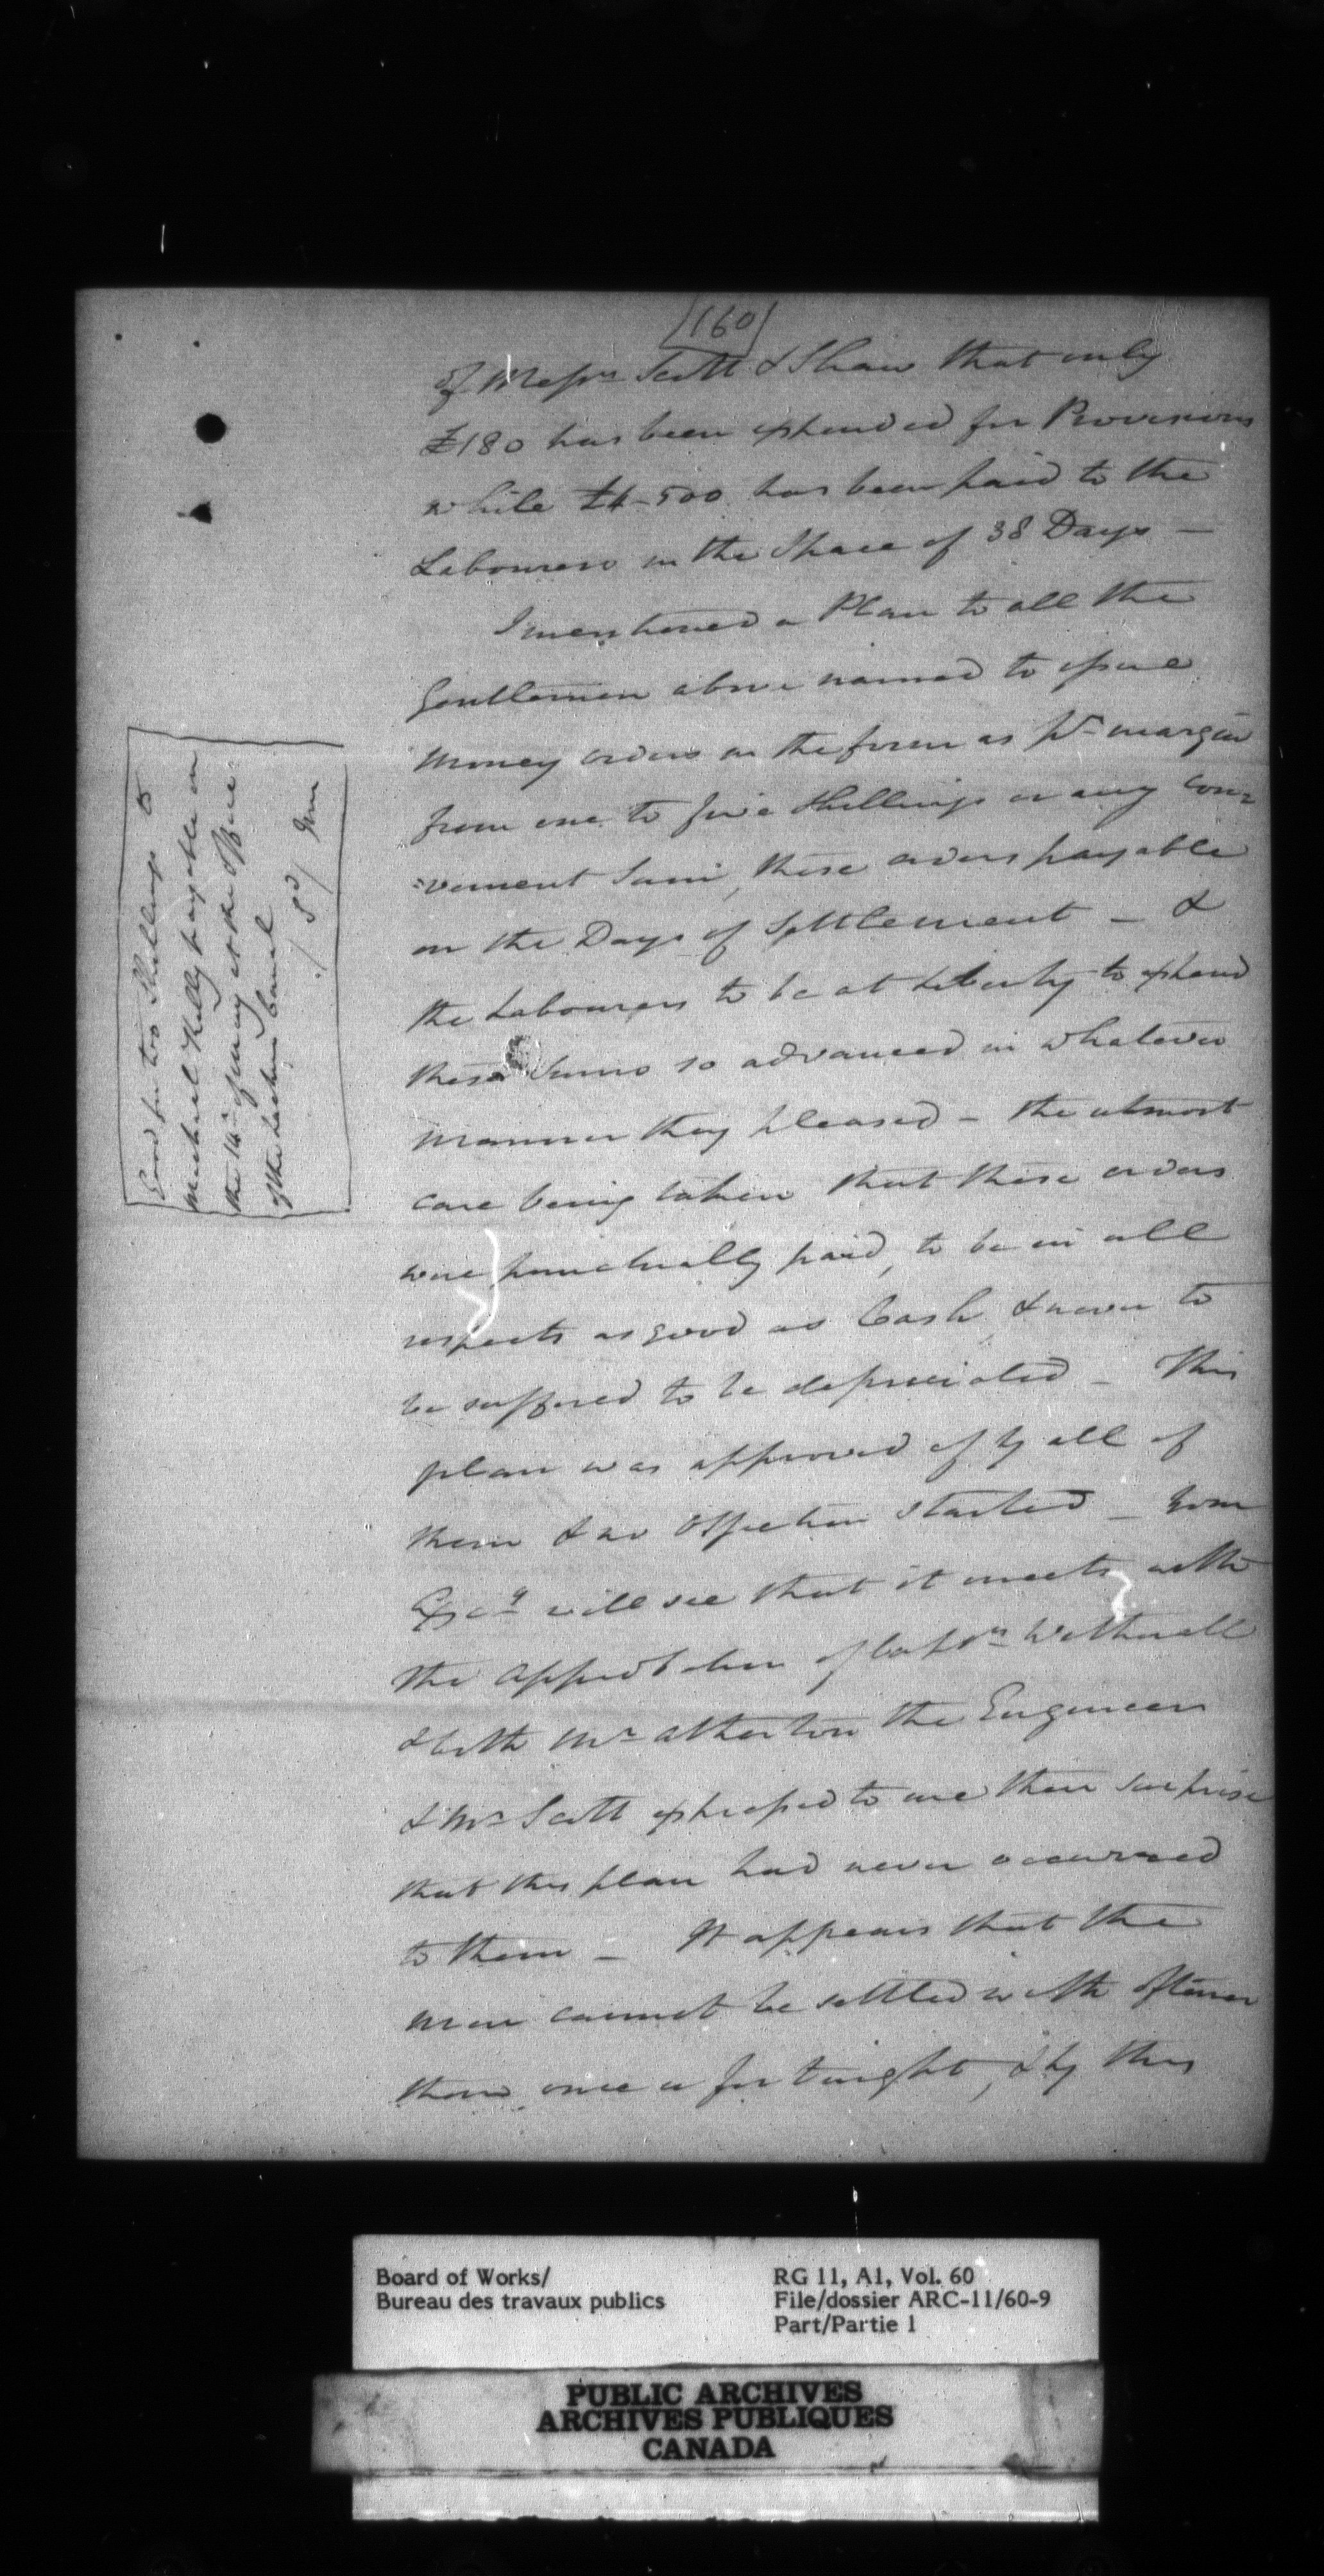 160
of Messrs Scott & Shaw that only
£180 has been expended for Provisions
while £4-500 has been paid to the
Labourers in the Space of 38 Days —
I mentioned a Plan to all the
Gentlemen above named to issue
money orders in the form as pr margin
from one to five Shillings or any con=
=venient Sum, these orders payable
on the Days of Settlement — &
the Labourers to be at Liberty to expend
these Sums so advanced in whatever
manner they pleased — the utmost
care being taken that these orders
were punctually paid, to be in all
respects as good as Cash, & never to
be suffered to be depreciated — This
plan was approved of by all of
them & no Objection started — Your
Excy will see that it meets with
the approbation of Captn Wetherall
& both Mr Atherton the Engineer
& Mr Scott expressed to me their surprise
that this plan had never occurred
to them — It appears that the
men cannot be settled with oftener
than once a fortnight, & by this
Good for two Shillings to
Michael Kelly payable on
the 14th of may at the Office
of the Lachine Canal
Board of Works/
Bureau des travaux publics
RG 11, A1, Vol. 60
File/dossier ARC-11/60-9
Part/Partie 1
PUBLIC ARCHIVES
ARCHIVES PUBLIQUES
CANADA